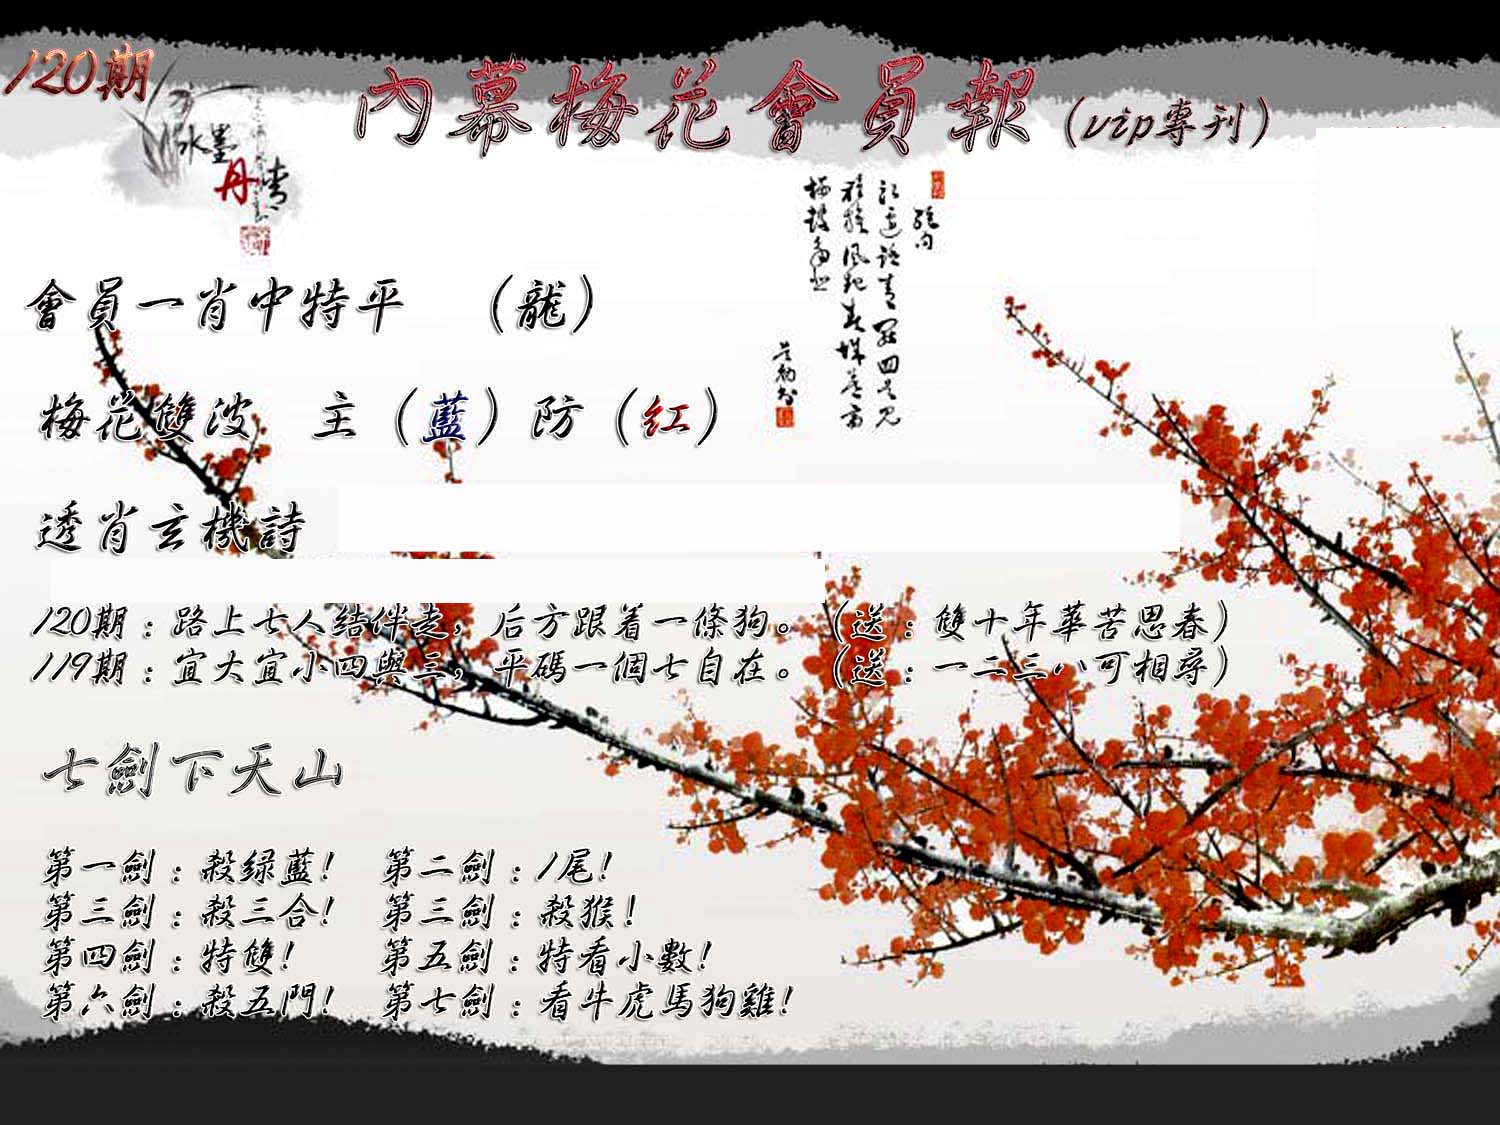 120期
內幕梅花會員報（vip專刊）
水墨
丹青
絕句
會員一肖中特平　（龍）
梅花雙波　主（藍）防（紅）
透肖玄機詩
120期：路上七人結伴走，后方跟着一條狗。（送：雙十年華苦思春）
119期：宜大宜小四與三，平碼一個七自在。（送：一二三八可相尋）
七劍下天山
第一劍：殺绿藍!　第二劍：1尾!
第三劍：殺三合!　第三劍：殺猴!
第四劍：特雙!　第五劍：特看小數!
第六劍：殺五門!　第七劍：看牛虎馬狗雞!